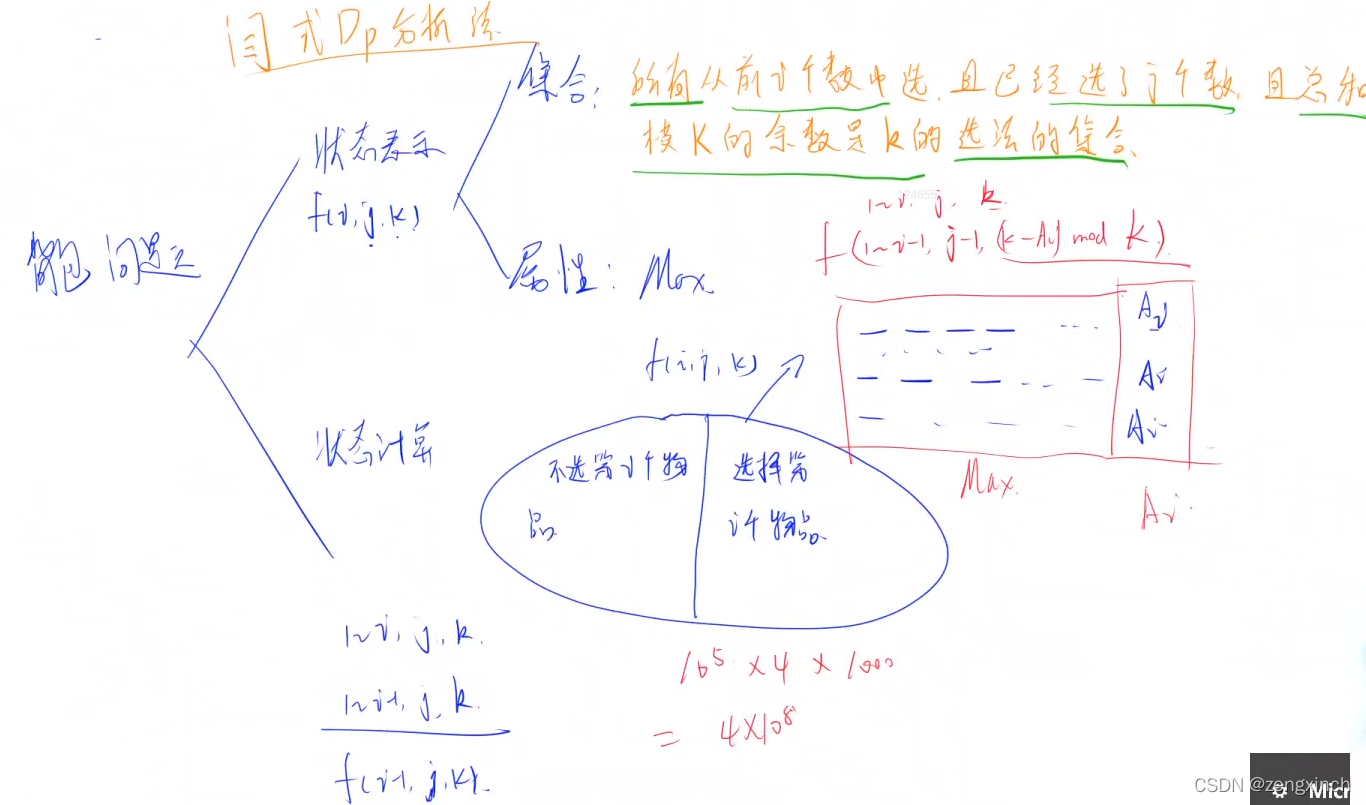 闫式Dp分析法
集合: 所有从前i个数中选,且已经选了j个数,且总和
模K的余数是k的选法的集合
状态表示
f(i,j,k)
背包问题
属性: Max
1~i, j, k
f(1~i-1, j-1, (k-Ai) mod K)
Ai
Ai
Ai
Max.
Ai
f(i,j,k)
状态计算
不选第i个物品
选择第i个物品
1~i, j, k.
1~i-1, j, k.
f(i-1, j, k).
10⁵ × 4 × 1000
= 4×10⁸
CSDN @zengxinch
Micr